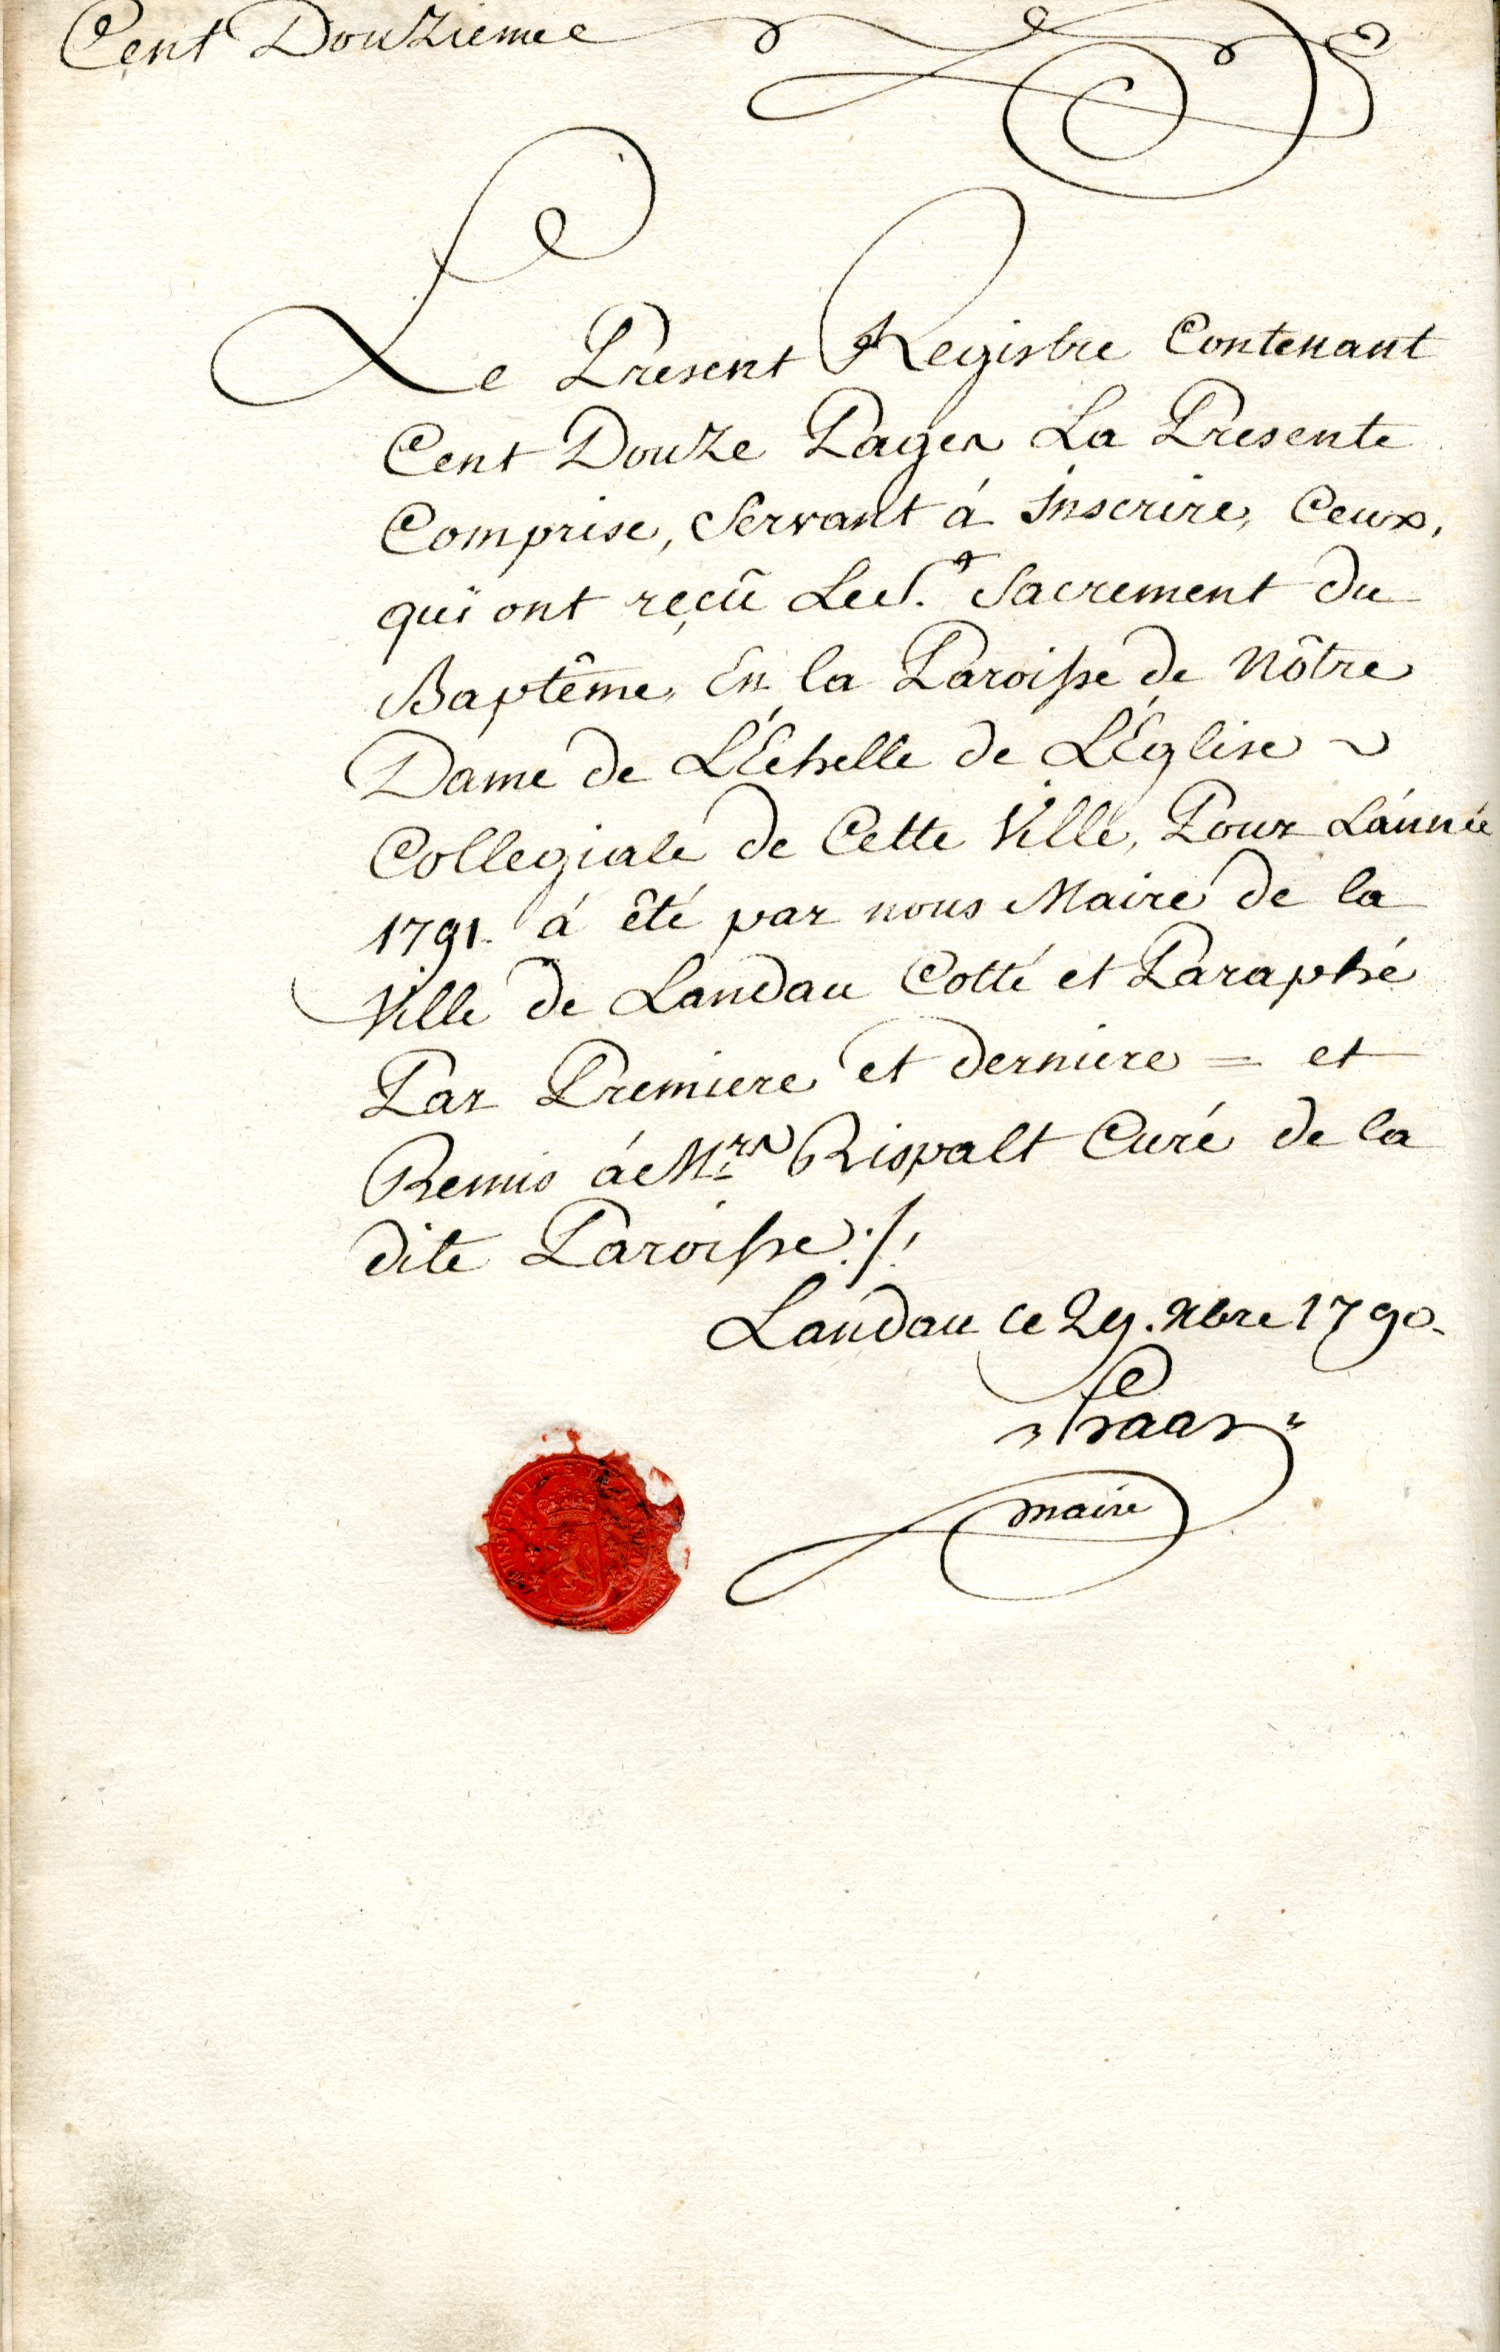 Cent Douzieme
Le Present Registre Contenant
Cent Douze Pages La Presente
Comprise, Servant á Inscrire, Ceux,
qui ont reçû Le St. Sacrement du
Baptême, En la Paroisse de Nôtre
Dame de L'Echelle de L'Église ~
Collegiale de Cette Ville, Pour L'année
1791. á êté par nous Maire de la
Ville de Landau Cotté et Paraphé
Par Premiere et derniere = et
Remis á Mrs Rispalt Curé de la
dite Paroisse ./.
Landau ce 29. Xbre 1790.
maire